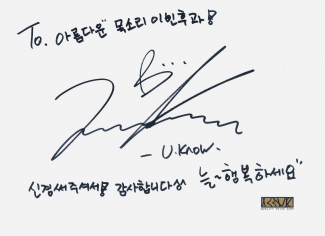 To. 아름다운 목소리 이빈후과!
B...
- U.Know.
신경써주셔서! 감사합니다
늘~ 행복하세요"